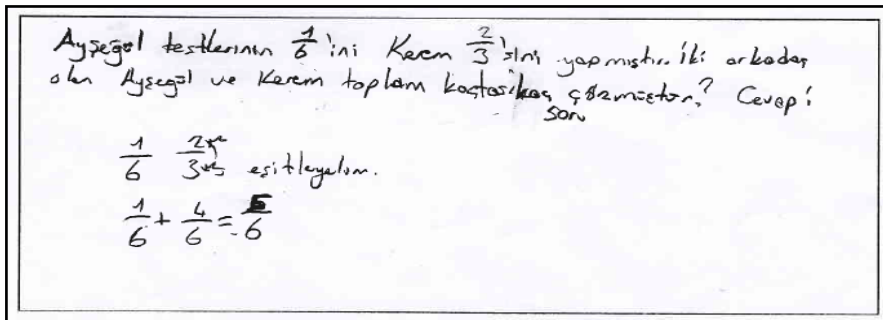 Ayşegül testlerinin 1/6'ini Kerem 2/3'sini yapmıştır. İki arkadaş
olan Ayşegül ve Kerem toplam kaçta kaç soru çözmüştür? Cevap:
1/6 2×2/3×2 eşitleyelim.
1/6 + 4/6 = 5/6